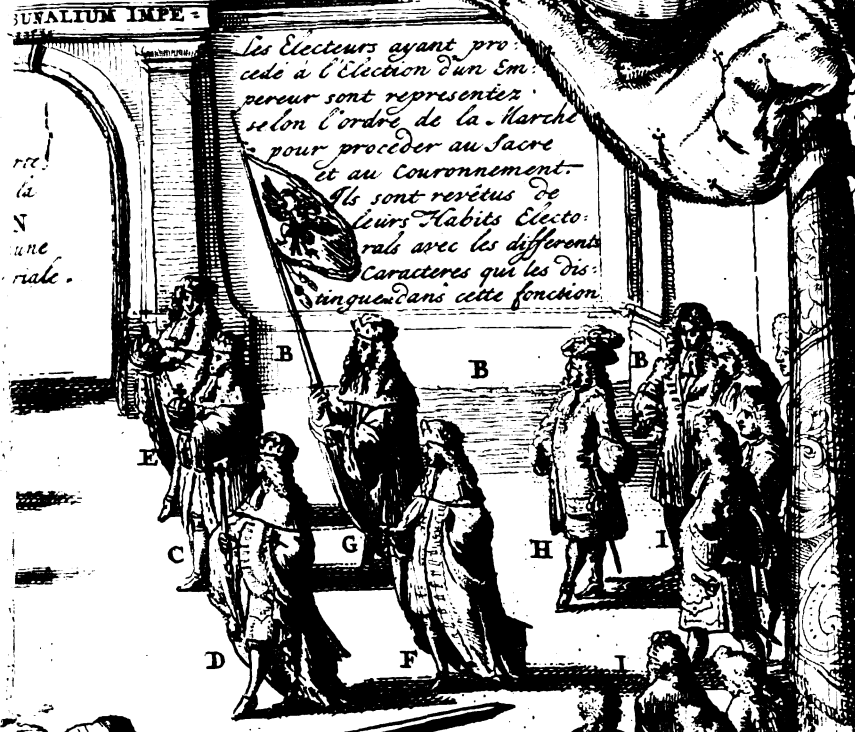 BUNALIUM IMPE =
Les Electeurs ayant pro-
cedé à l'Election d'un Em-
pereur sont representez
selon l'ordre de la Marche
pour proceder au Sacre
et au Couronnement.
Ils sont revétus de
leurs Habits Electo-
rals avec les differents
Caracteres qui les dis-
tinguent dans cette fonction
là
N
une
riale.
B
B
B
E
C
G
H
I
D
F
I